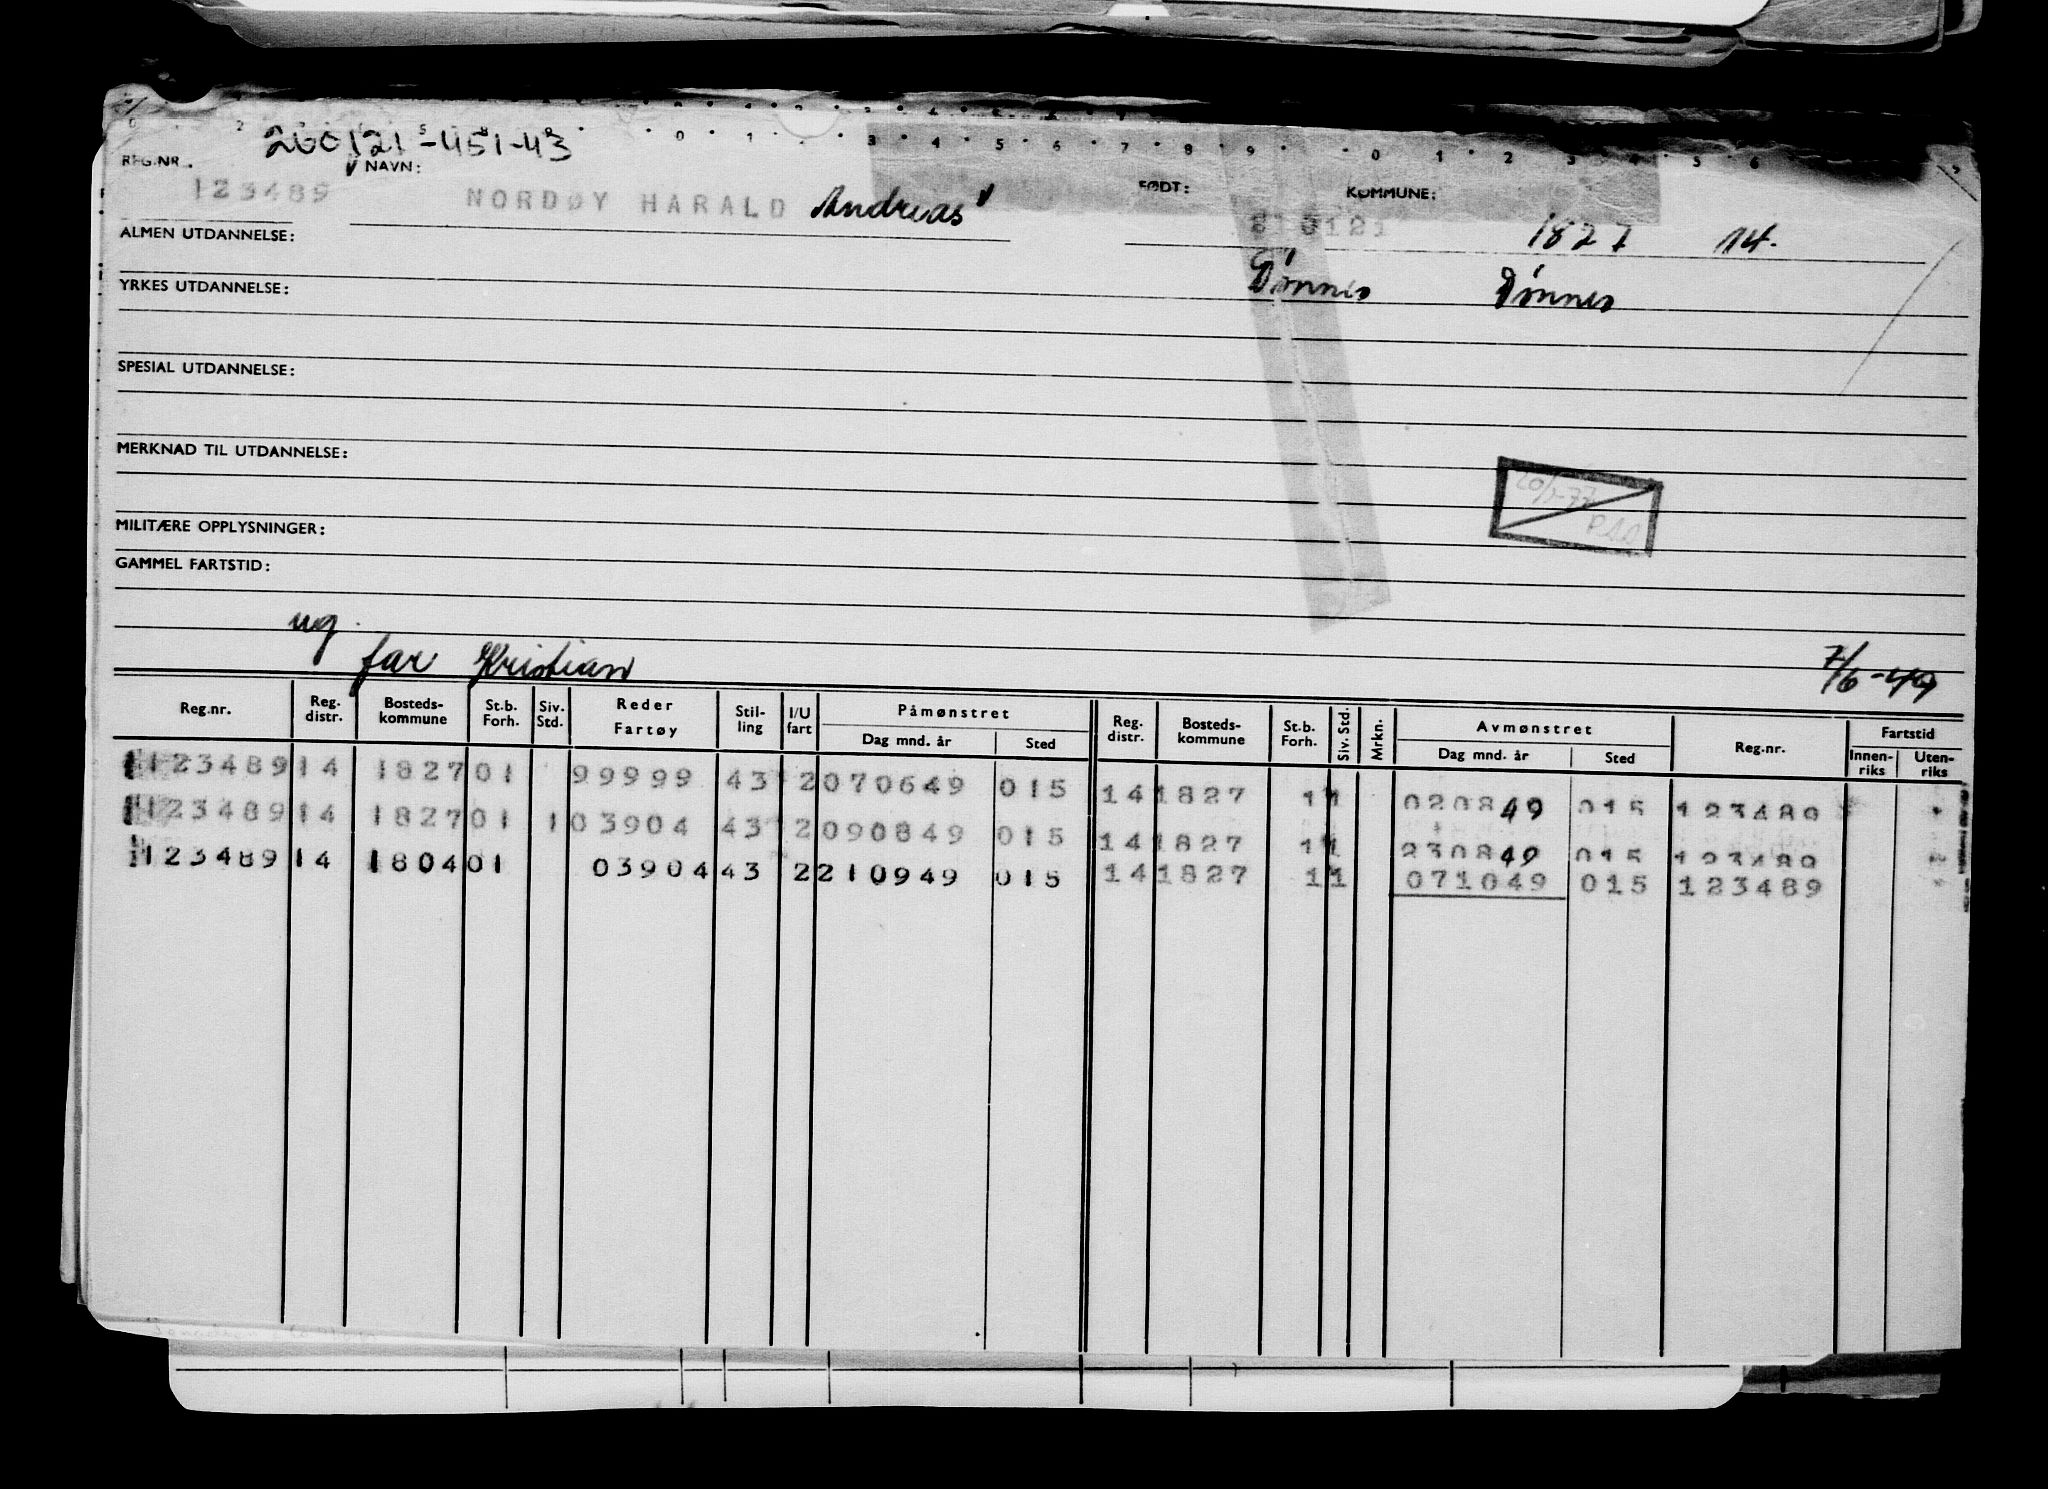 260121-451-43
REG.NR. NAVN: FØDT: KOMMUNE:
123489 NORDØY HARALD Andreas 1827 14.
ALMEN UTDANNELSE:
Dønnes Dønnes
YRKES UTDANNELSE:
SPESIAL UTDANNELSE:
MERKNAD TIL UTDANNELSE:
MILITÆRE OPPLYSNINGER:
GAMMEL FARTSTID:
ug.
far Kristian 7/6-49
Reg.nr. Reg. distr. Bosteds-kommune St.b. Forh. Siv. Std. Reder Fartøy Stil-ling I/U fart Påmønstret Dag mnd. år Sted Reg. distr. Bosteds-kommune St.b. Forh. Siv. Std. Mrkn. Avmønstret Dag mnd. år Sted Reg.nr. Fartstid Innen-riks Uten-riks
123489 14 1827 01 99999 43 2 070649 015 14 1827 1 1 020849 015 123489
123489 14 1827 01 1 03904 43 2 090849 015 14 1827 1 1 230849 015 123489
123489 14 1804 01 03904 43 2 210949 015 14 1827 1 1 071049 015 123489